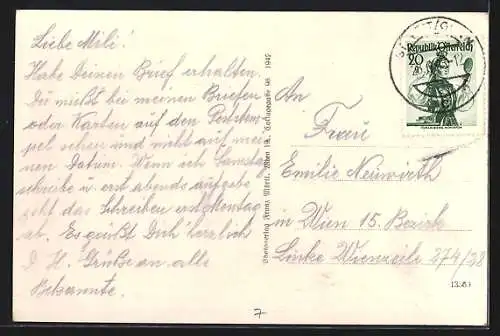 Liebe Mili!
Habe Deinen Brief erhalten.
Du mußt bei meinen Briefen
oder Karten auf den Poststem-
pel sehen und nicht auf mei-
nen Datum. Wenn ich Samstag
schreibe u. erst abends aufgebe
geht das Schreiben erst Montag
ab. Es grüßt Dich herzlich
D. H. Grüße an alle
Bekannte.
Photoverlag Franz Mörtl, Wien IX. 1949
An
Frau
Emilie Neuwirth
in Wien 15. Bezirk
Linke Wienzeile 274/28
Republik Österreich
20
13583
7